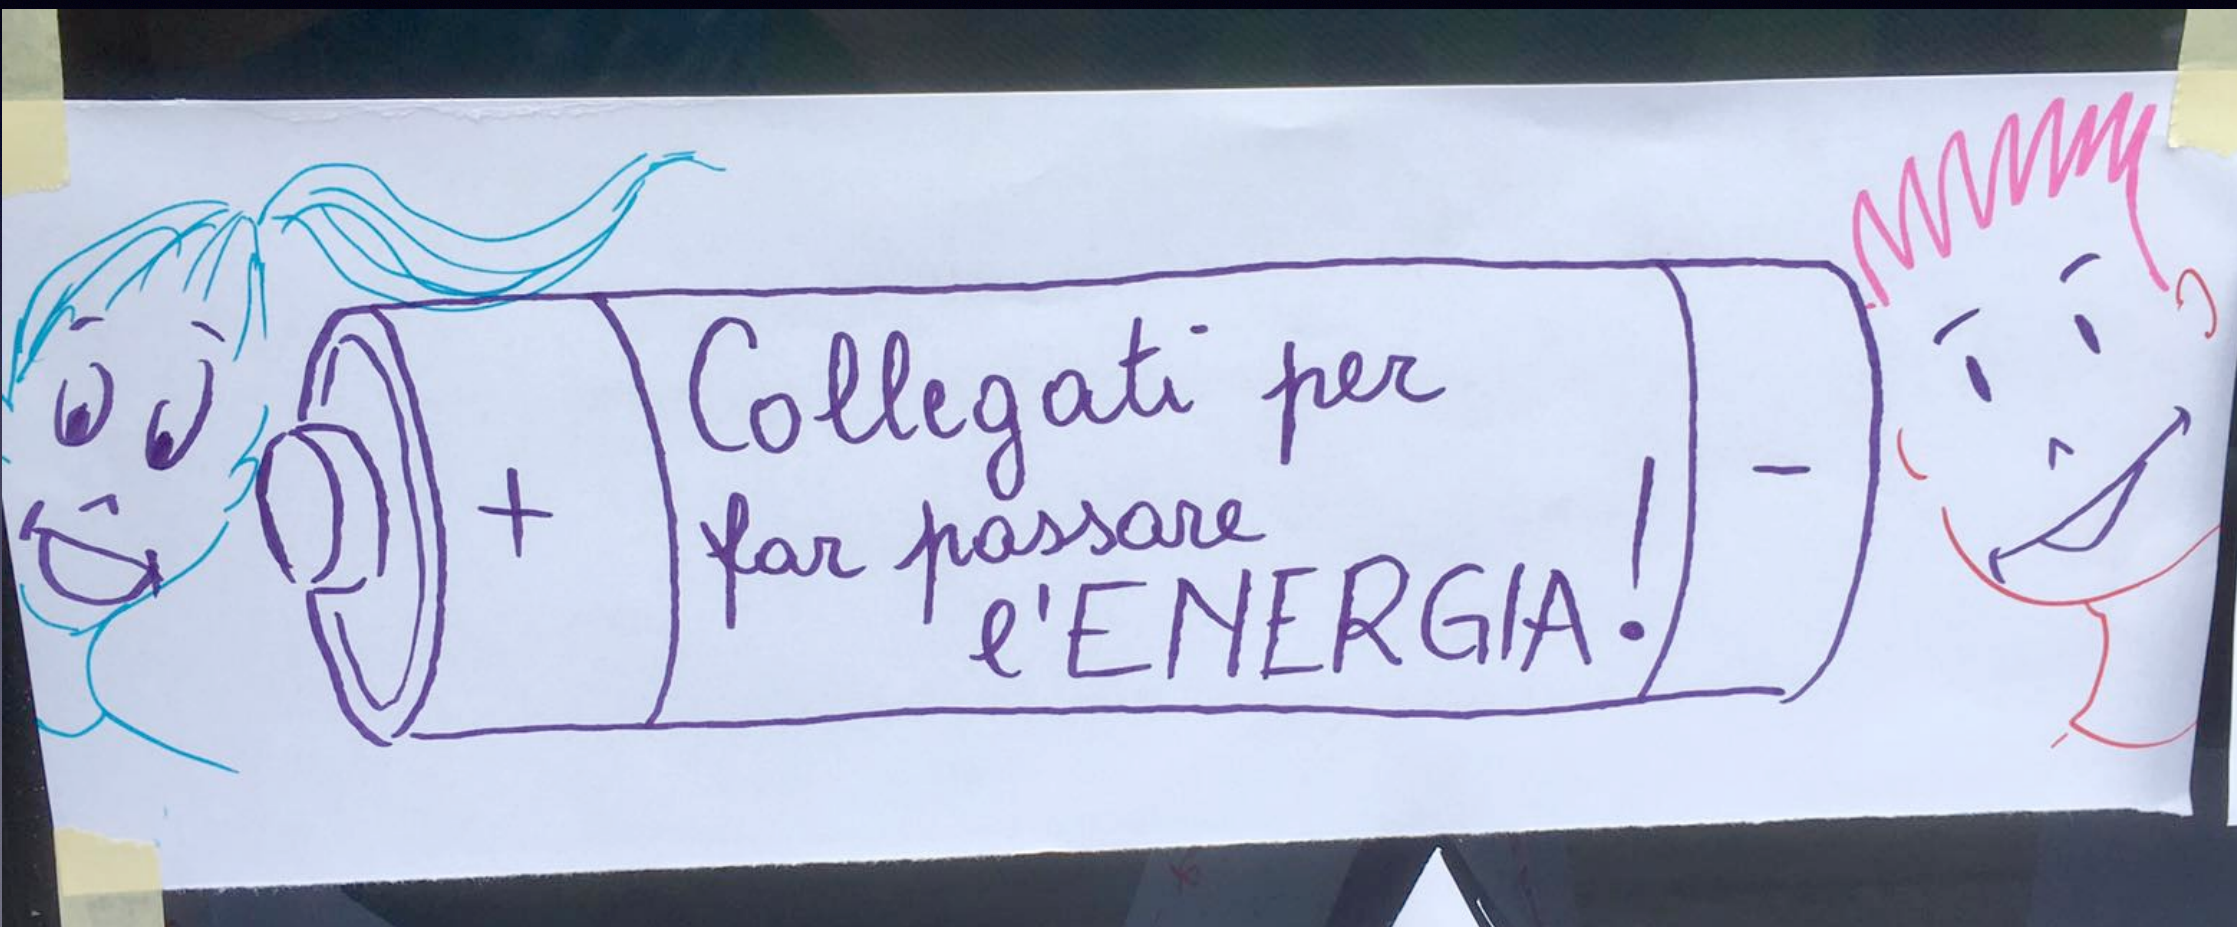 +
Collegati per
far passare
l'ENERGIA!
-